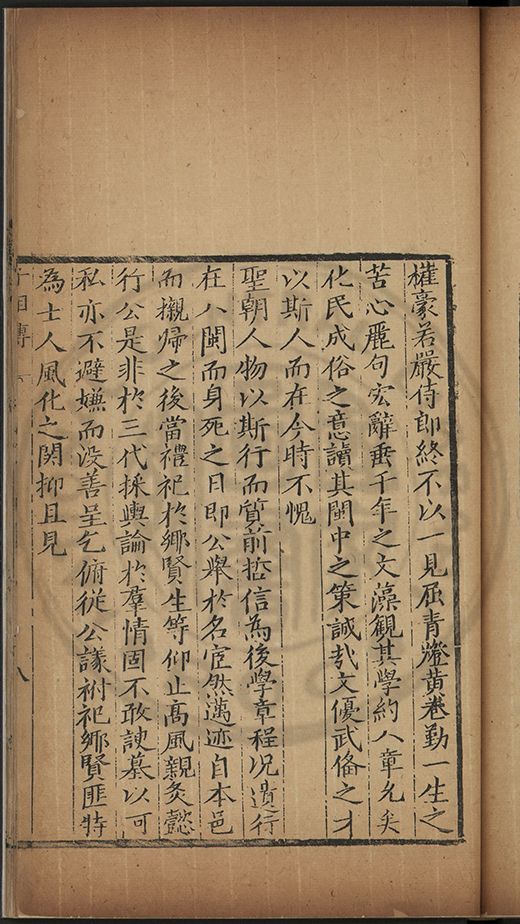 權豪若嚴侍郎終不以一見屈青燈黃卷勤一生之
苦心麗句宏辭垂千年之文藻觀其學約八章允矣
化民成俗之意讀其閩中之策誠哉文優武偹之才
以斯人而在今時不愧
聖朝人物以斯行而質前哲信為後學章程况遺行
在八閩而身死之日即公舉於名宦然邁迹自本邑
而櫬歸之後當禮祀於鄉賢生等仰止高風親炙懿
行公是非於三代採輿論於羣情固不敢諛墓以可
私亦不避嫌而没善呈乞俯從公議祔祀鄉賢匪特
為士人風化之関抑且見
八